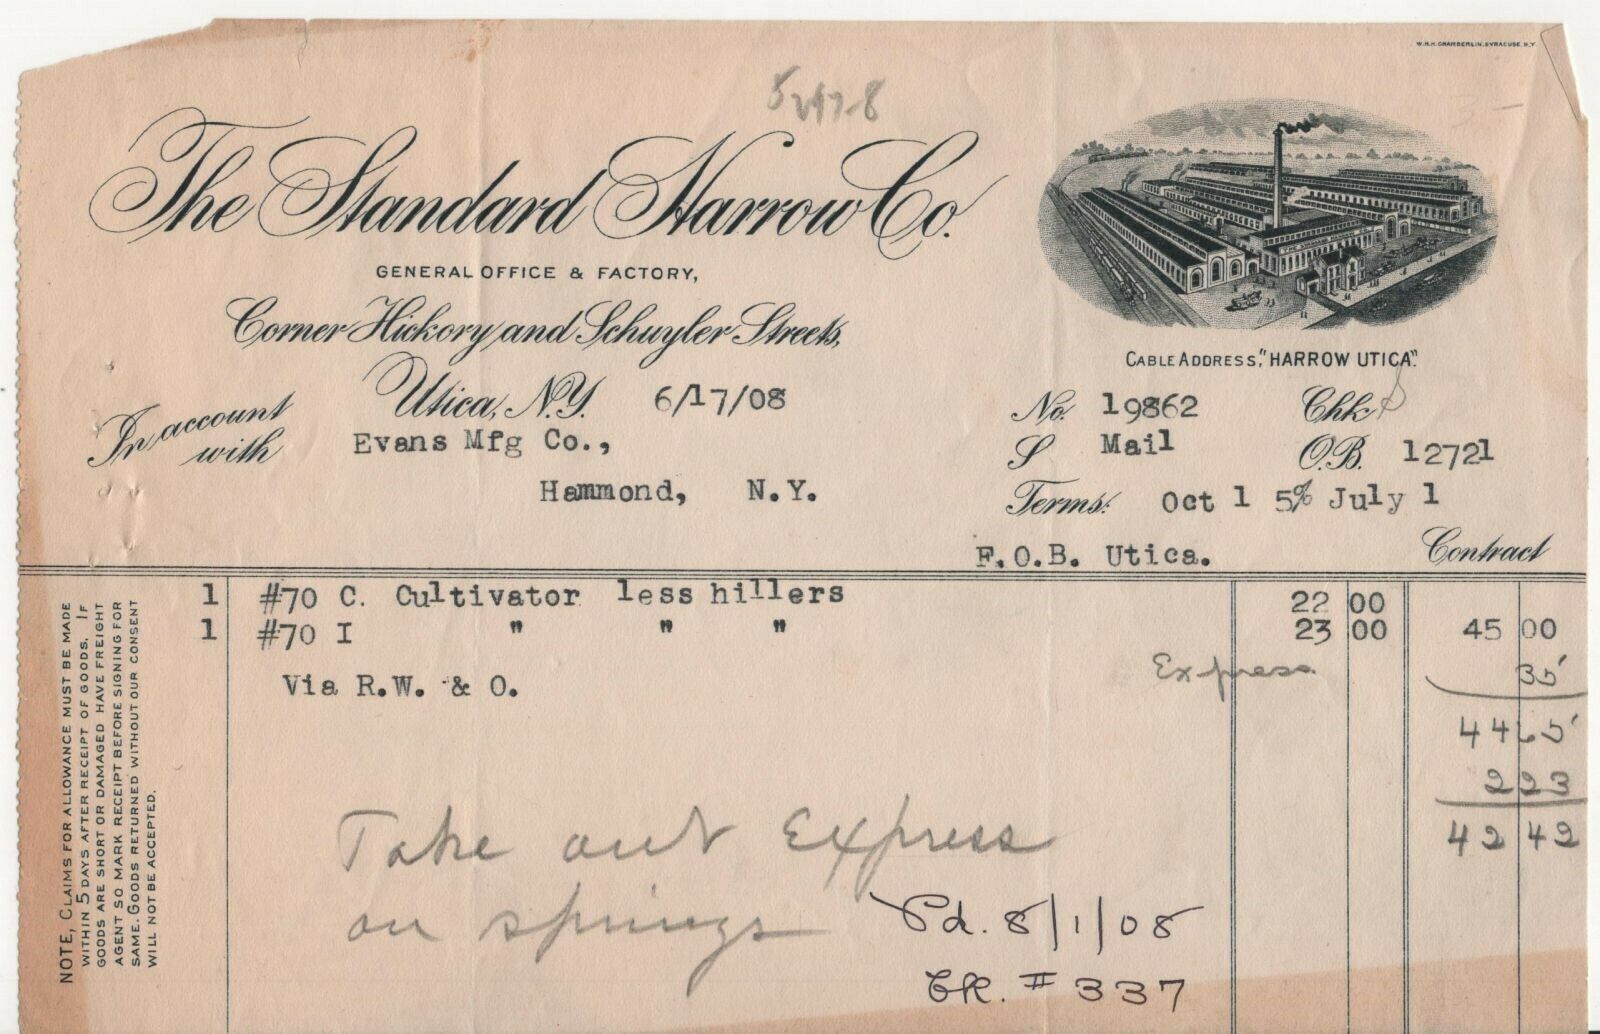 W.H.H. CHAMBERLIN, SYRACUSE, N.Y.
5247-8
The Standard Harrow Co.
GENERAL OFFICE & FACTORY,
Corner Hickory and Schuyler Streets,
CABLE ADDRESS, "HARROW UTICA".
Utica, N.Y. 6/17/08
No. 19862 Chk
In account with
Evans Mfg Co.,
S Mail O.B. 12721
Hammond, N.Y.
Terms: Oct 1 5% July 1
F.O.B. Utica. Contract
1 #70 C. Cultivator less hillers 22 00
1 #70 I " " " 23 00 45 00
Via R.W. & O. Express 35
44 65
2 23
42 42
Take out Express
on springs
Pd. 8/1/08
Ck. # 337
NOTE, CLAIMS FOR ALLOWANCE MUST BE MADE
WITHIN 5 DAYS AFTER RECEIPT OF GOODS. IF
GOODS ARE SHORT OR DAMAGED HAVE FREIGHT
AGENT SO MARK RECEIPT BEFORE SIGNING FOR
SAME. GOODS RETURNED WITHOUT OUR CONSENT
WILL NOT BE ACCEPTED.